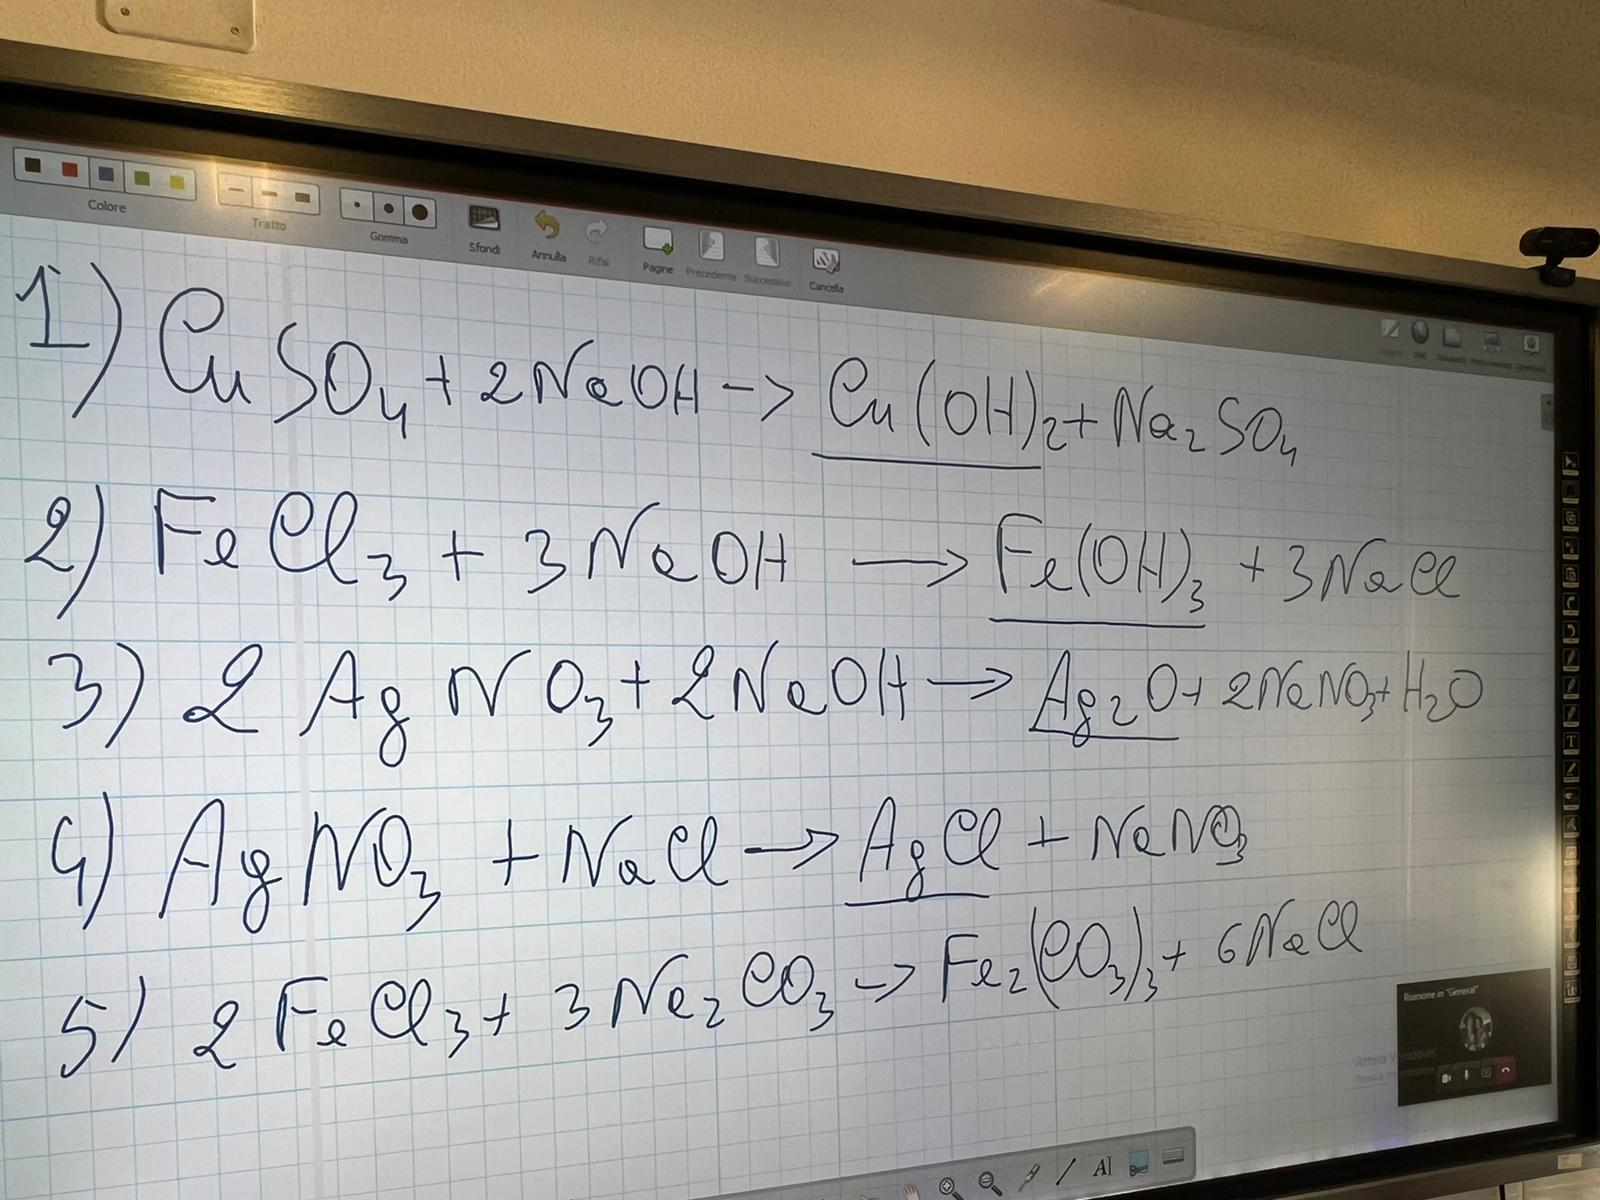 Colore Tratto Gomma Sfondi Annulla Rifai Pagine Precedente Successivo Cancella
1) CuSO4 + 2NaOH -> Cu(OH)2 + Na2SO4
2) FeCl3 + 3NaOH -> Fe(OH)3 + 3NaCl
3) 2AgNO3 + 2NaOH -> Ag2O + 2NaNO3 + H2O
4) AgNO3 + NaCl -> AgCl + NaNO3
5) 2FeCl3 + 3Na2CO3 -> Fe2(CO3)3 + 6NaCl
Riunione in "General"
AI